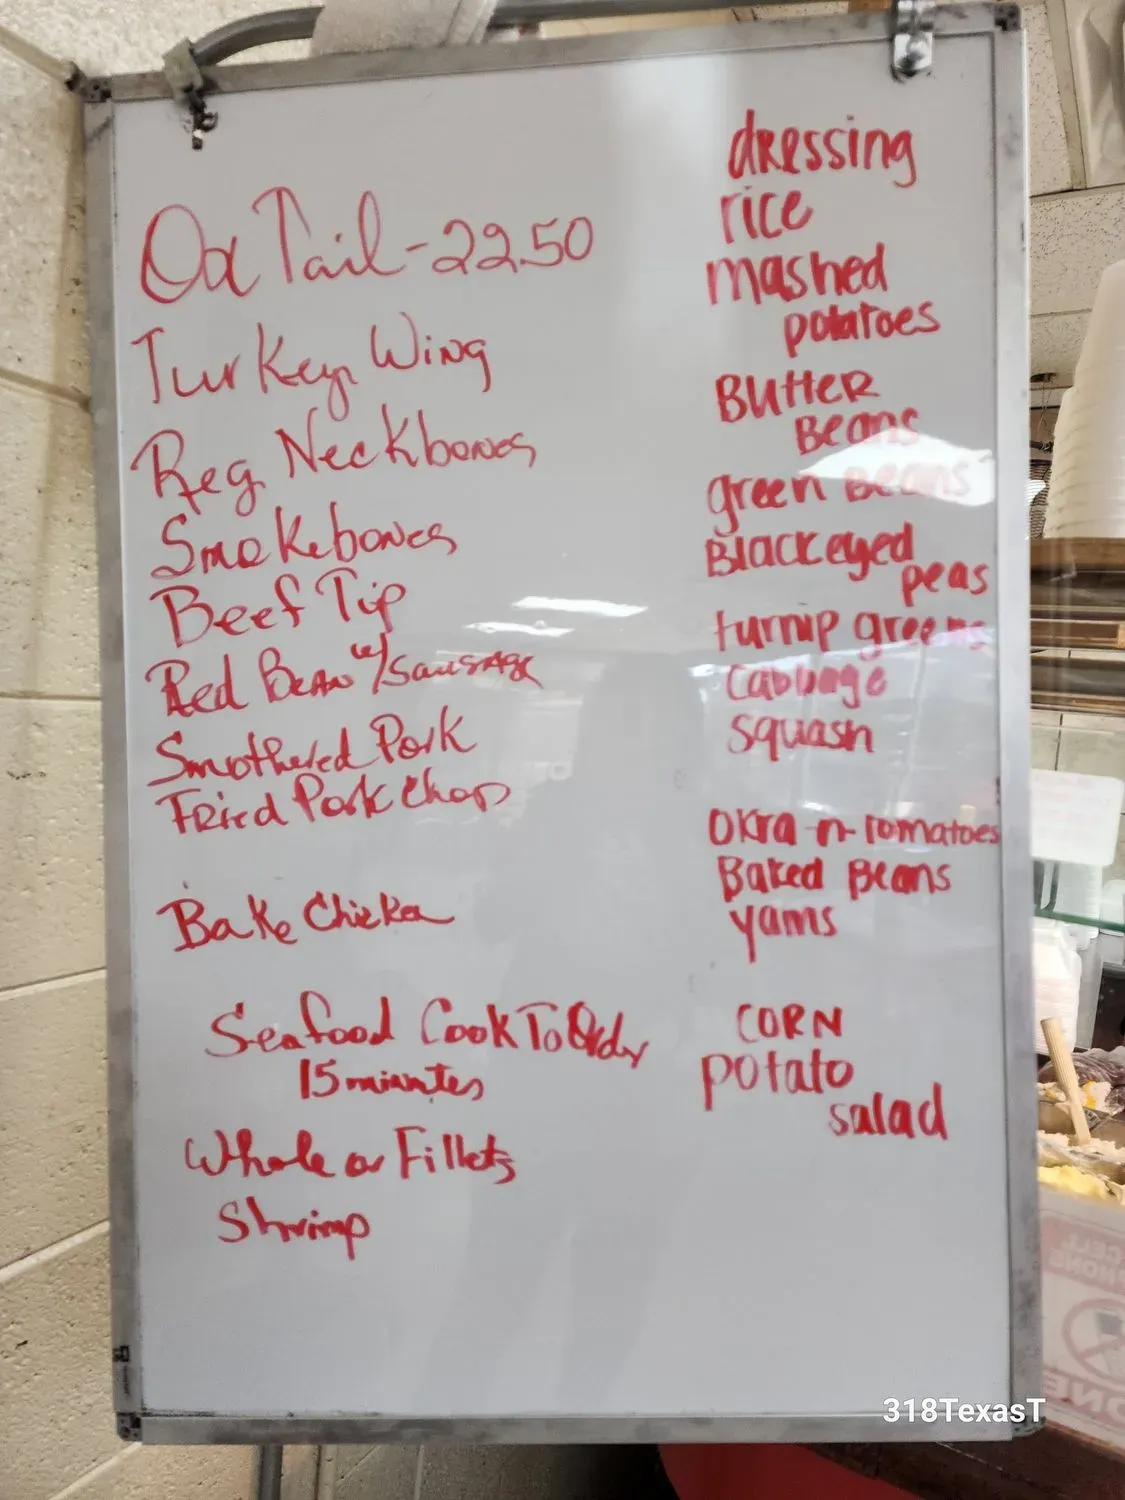 Ox Tail - 22.50
Turkey Wing
Reg Neckbones
Smokebones
Beef Tip
Red Bean w/ Sausage
Smothered Pork
Fried Pork Chop
Bake Chicken
Seafood Cook To Order
15 minutes
Whole or Fillets
Shrimp
dressing
rice
mashed
potatoes
Butter
Beans
green Beans
Blackeyed
peas
turnip greens
Cabbage
squash
okra-n-tomatoes
Baked Beans
yams
CORN
potato
salad
CELL
PHONE
318TexasT